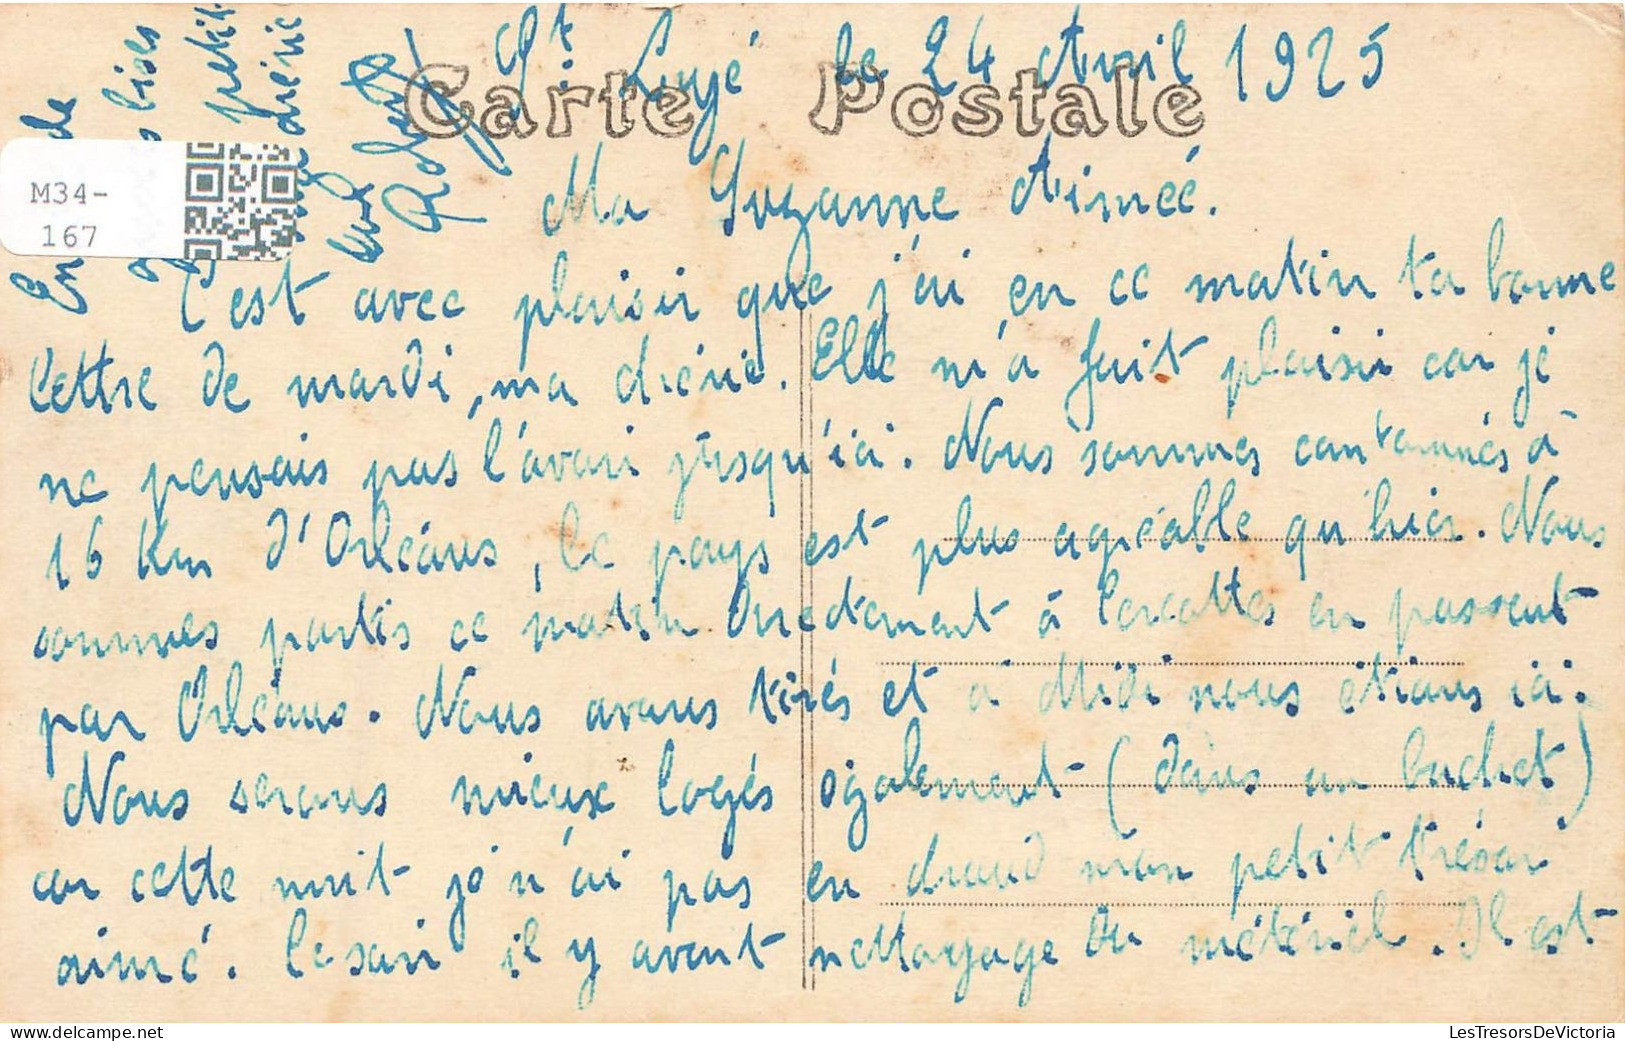 St Lyé le 24 Avril 1925
Carte Postale
Ma Suzanne Aimée.
C'est avec plaisir que j'ai eu ce matin ta bonne
lettre de mardi, ma chérie. Elle m'a fait plaisir car je
ne pensais pas l'avoir jusqu'ici. Nous sommes cantonnés à
16 Km d'Orléans, le pays est plus agréable qu'hier. Nous
sommes partis ce matin directement à Cercottes en passant
par Orléans. Nous avons tirés et à Midi nous étions ici.
Nous serons mieux logés également (dans un
car cette nuit je n'ai pas eu chaud mon petit trésor
aimé. Ce soir il y avait nettoyage du matériel. Il est
de
En
petit
chérie
Robert
M34-
167
LesTresorsDeVictoria
https://www.delcampe.net